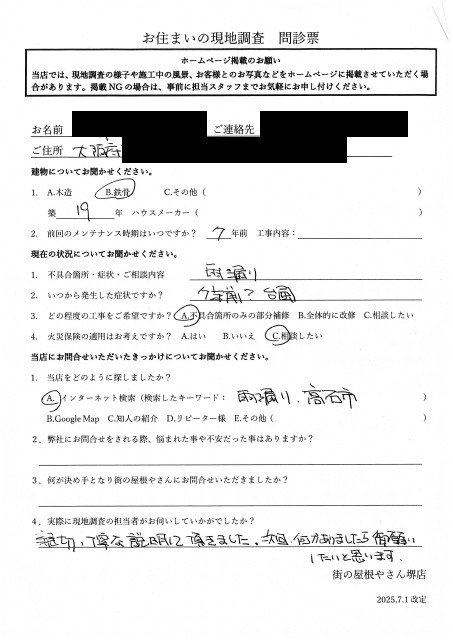 お住まいの現地調査 問診票
ホームページ掲載のお願い
当店では、現地調査の様子や施工中の風景、お客様とのお写真などをホームページに掲載させていただく場
合があります。掲載NGの場合は、事前に担当スタッフまでお気軽にお申し付けください。
お名前 ご連絡先
ご住所 大阪府
建物についてお聞かせください。
1. A.木造 B.鉄骨 C.その他( )
築 19 年 ハウスメーカー( )
2. 前回のメンテナンス時期はいつですか? 7 年前 工事内容:
現在の状況についてお聞かせください。
1. 不具合箇所・症状・ご相談内容 雨漏り
2. いつから発生した症状ですか? 年前? 台風
3. どの程度の工事をご希望ですか? A.不具合箇所のみの部分補修 B.全体的に改修 C.相談したい
4. 火災保険の適用はお考えですか? A.はい B.いいえ C.相談したい
当店にお問合せいただいたきっかけについてお聞かせください。
1. 当店をどのように探しましたか?
A.インターネット検索(検索したキーワード: 雨漏り、高石市 )
B.Google Map C.知人の紹介 D.リピーター様 E.その他( )
2、弊社にお問合せをされる際、悩まれた事や不安だった事はありますか?
3、何が決め手となり街の屋根やさんにお問合せいただきましたか?
4、実際に現地調査の担当者がお伺いしていかがでしたか?
親切、丁寧な説明して頂きました。次回、何かありましたら御願い
したいと思います。
街の屋根やさん堺店
2025.7.1 改定